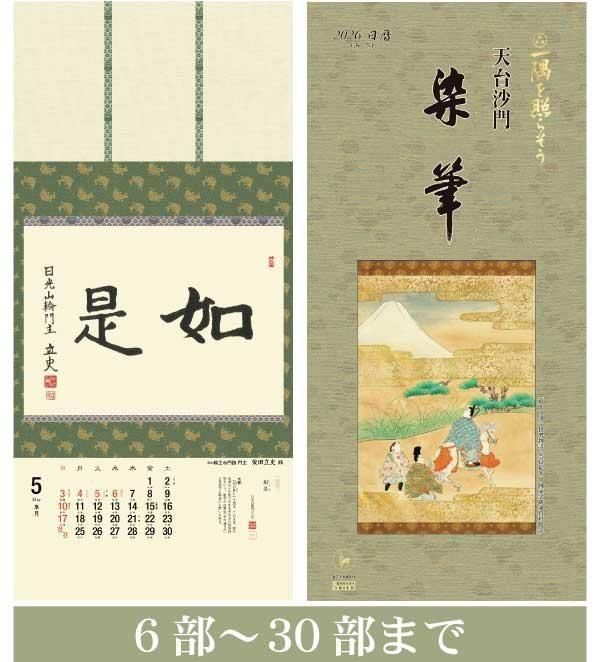 如是
日光山輪門主 立史
輪王寺門跡 門主 柴田立史 師
5
May
皐月
日 月 火 水 木 金 土
1 2
3 4 5 6 7 8 9
10 11 12 13 14 15 16
17 18 19 20 21 22 23
25 26 27 28 29 30
一隅を照らそう
天台沙門
染筆
2026 日暦
6部〜30部まで